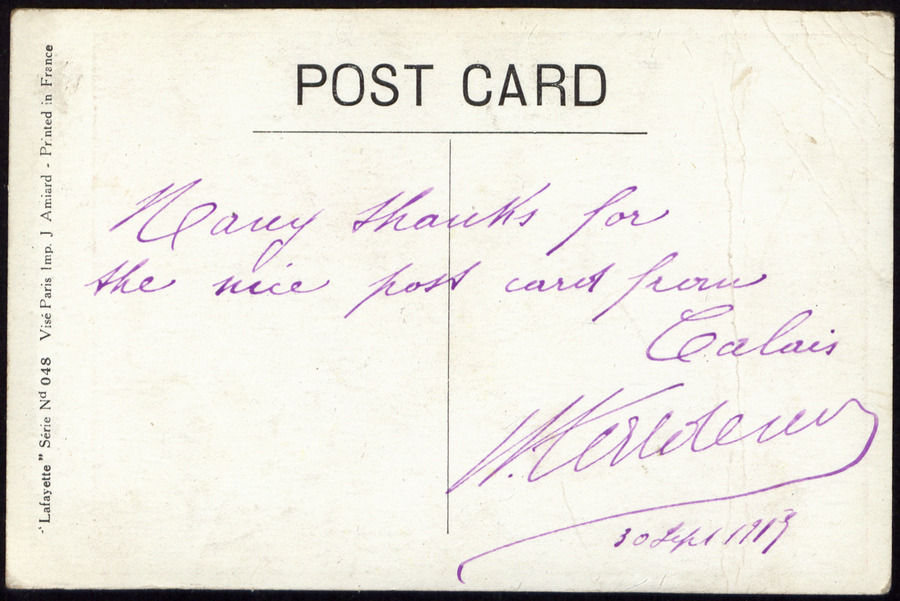 POST CARD
Many thanks for
the nice post card from
Calais
30 Sept 1919
"Lafayette" Série Nd 048 Visé Paris Imp. J Amiard - Printed in France